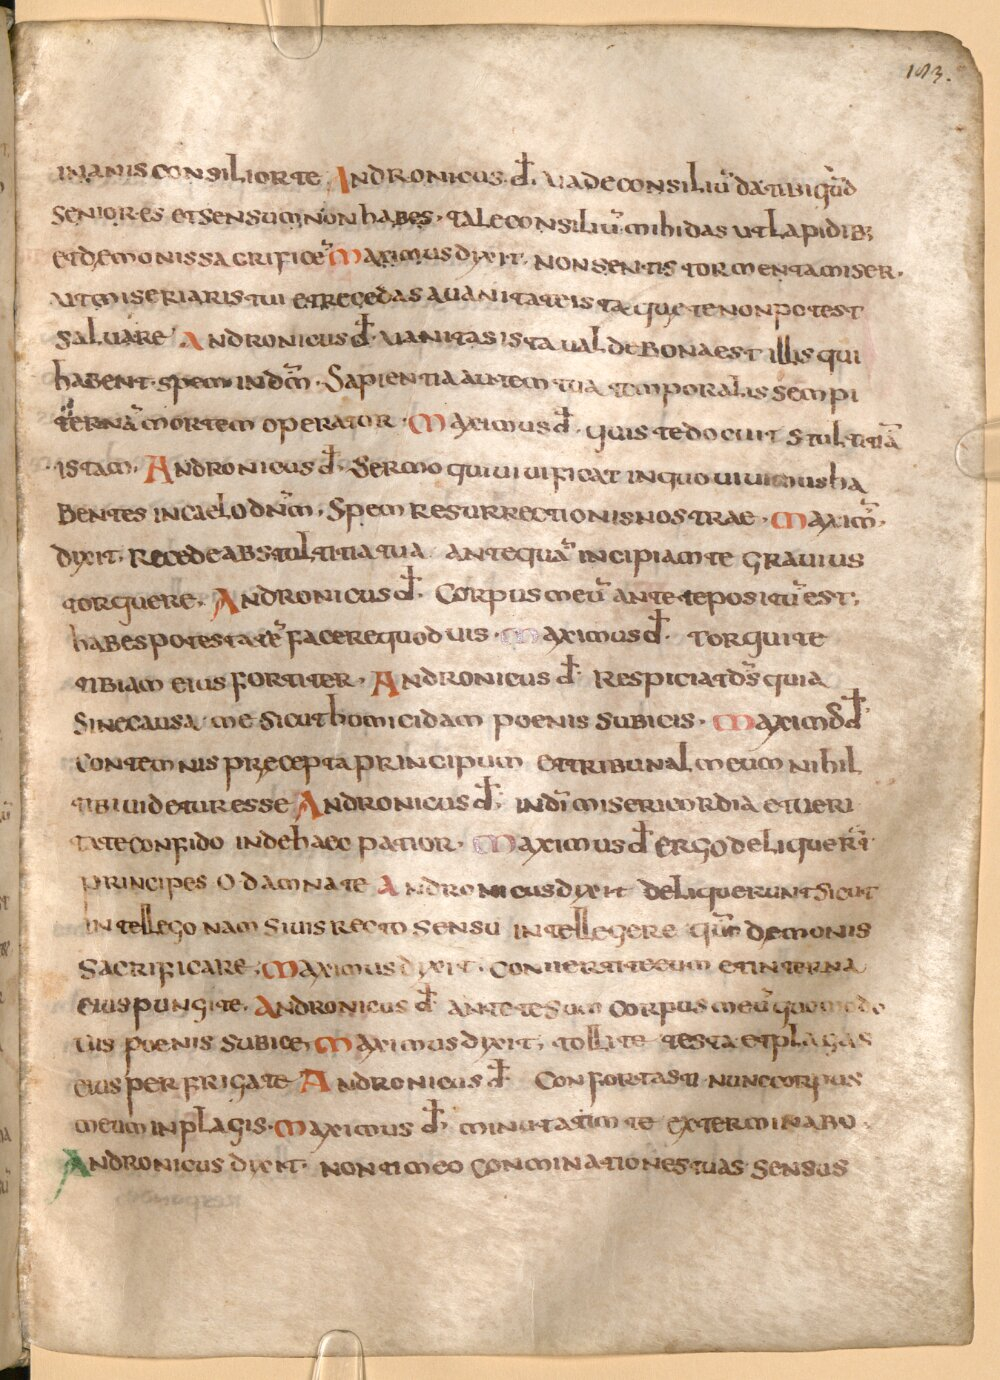 183.
inanis consilior te Andronicus đ. Uade consiliū dat tibi quōd
seniores et sensum non habes. tale consiliū mihi das ut lapidib;
et dęmonis sacrificē Maximus dixit. non sentis tormenta miser.
ut miseriaris tui et recedas a uanitate ista quę te non potest
saluare Andronicus đ. uanitas ista ualde bona est illis qui
habent spem in dm̄. Sapientia autem tua temporalis sempi
ternā mortem operator. Maximus đ. quis te docuit stultitiā
istam. Andronicus đ. Sermo qui uiuificat in quo uiuimus ha
bentes in caelo dn̄m. Spem resurrectionis nostrae. Maxim̄.
dixit. Recede ab stultitia tua antequā incipiam te grauius
torquere. Andronicus đ. Corpus meū ante te positū est;
habes potestatē facere quod uis. Maximus đ. torquite
tibiam eius fortiter. Andronicus đ. Respiciat d̄s quia
sine causa me sicut homicidam poenis subicis. Maximus đ
contemnis precepta principum et tribunal meum nihil
tibi uidetur esse Andronicus đ. in dī misericordia et ueri
tate confido inde haec patior. Maximus đ ergo deliquer̄t
principes o damnate Andronicus dixit deliquerunt sicut
intellego nam si uis recto sensu intellegere qūm dęmonis
sacrificare. Maximus dixit. conuertite eum et in terna
eius pungite. Andronicus đ ante te sum corpus meū quomodo
uis poenis subice. Maximus dixit. tollite testa et plagas
eius perfrigate Andronicus đ Confortasti nunc corpus
meum in plagis. Maximus đ. minutatim te exterminabo.
Andronicus dixit. non timeo conminationes tuas sensus